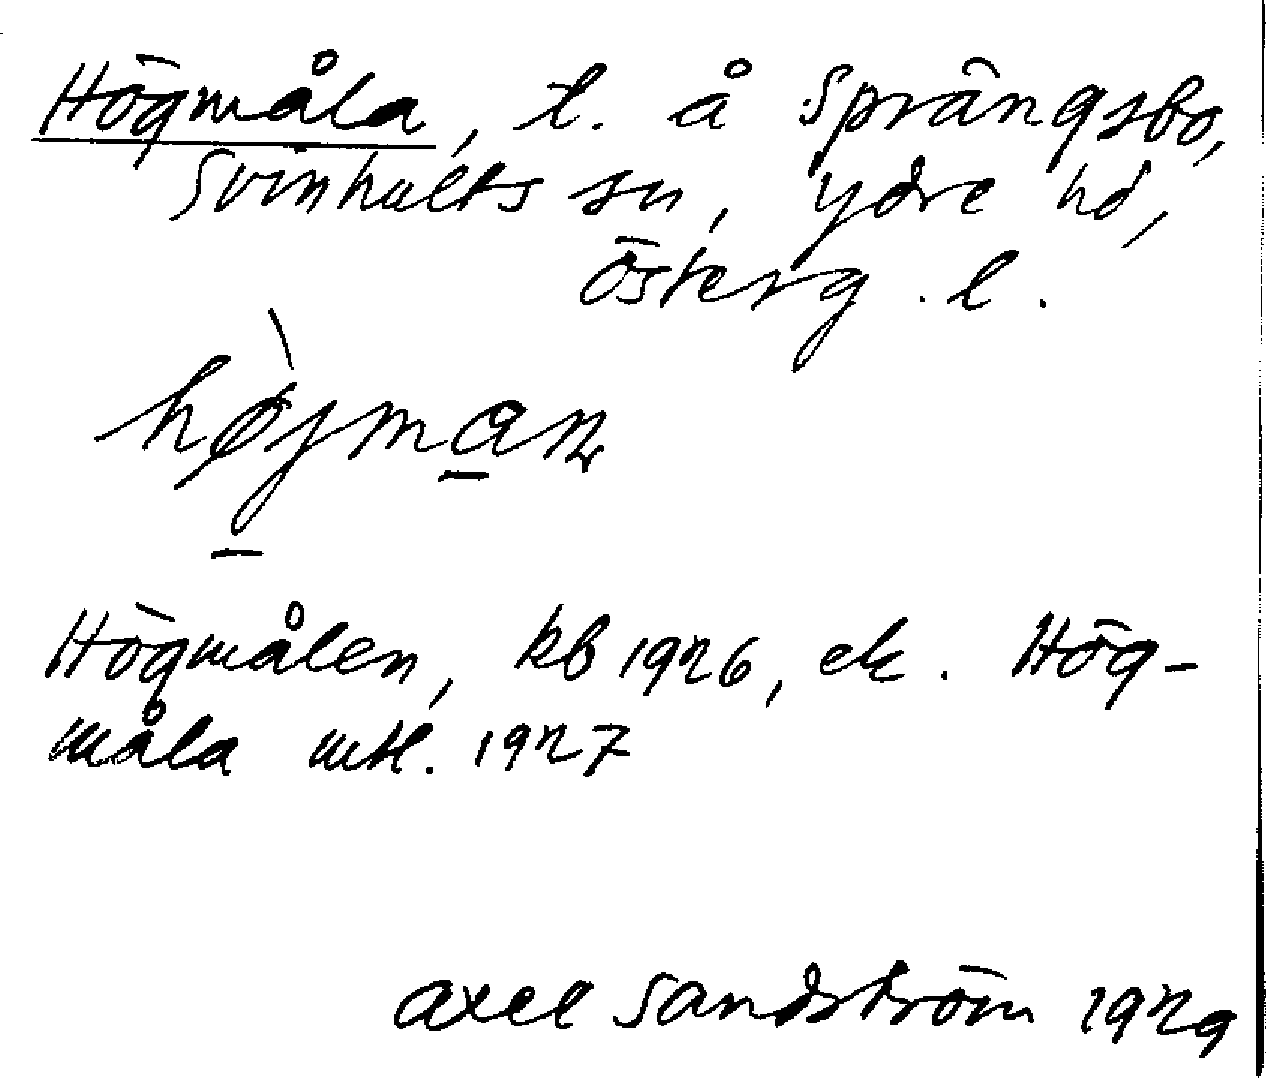 Högmåla, t. å Sprängsbo,
Svinhults sn, Ydre hd,
Österg. l.
hø̀jman
Högmålen, kb 1926, ek. Hög-
måla mtl. 1927
Axel Sandström 1929